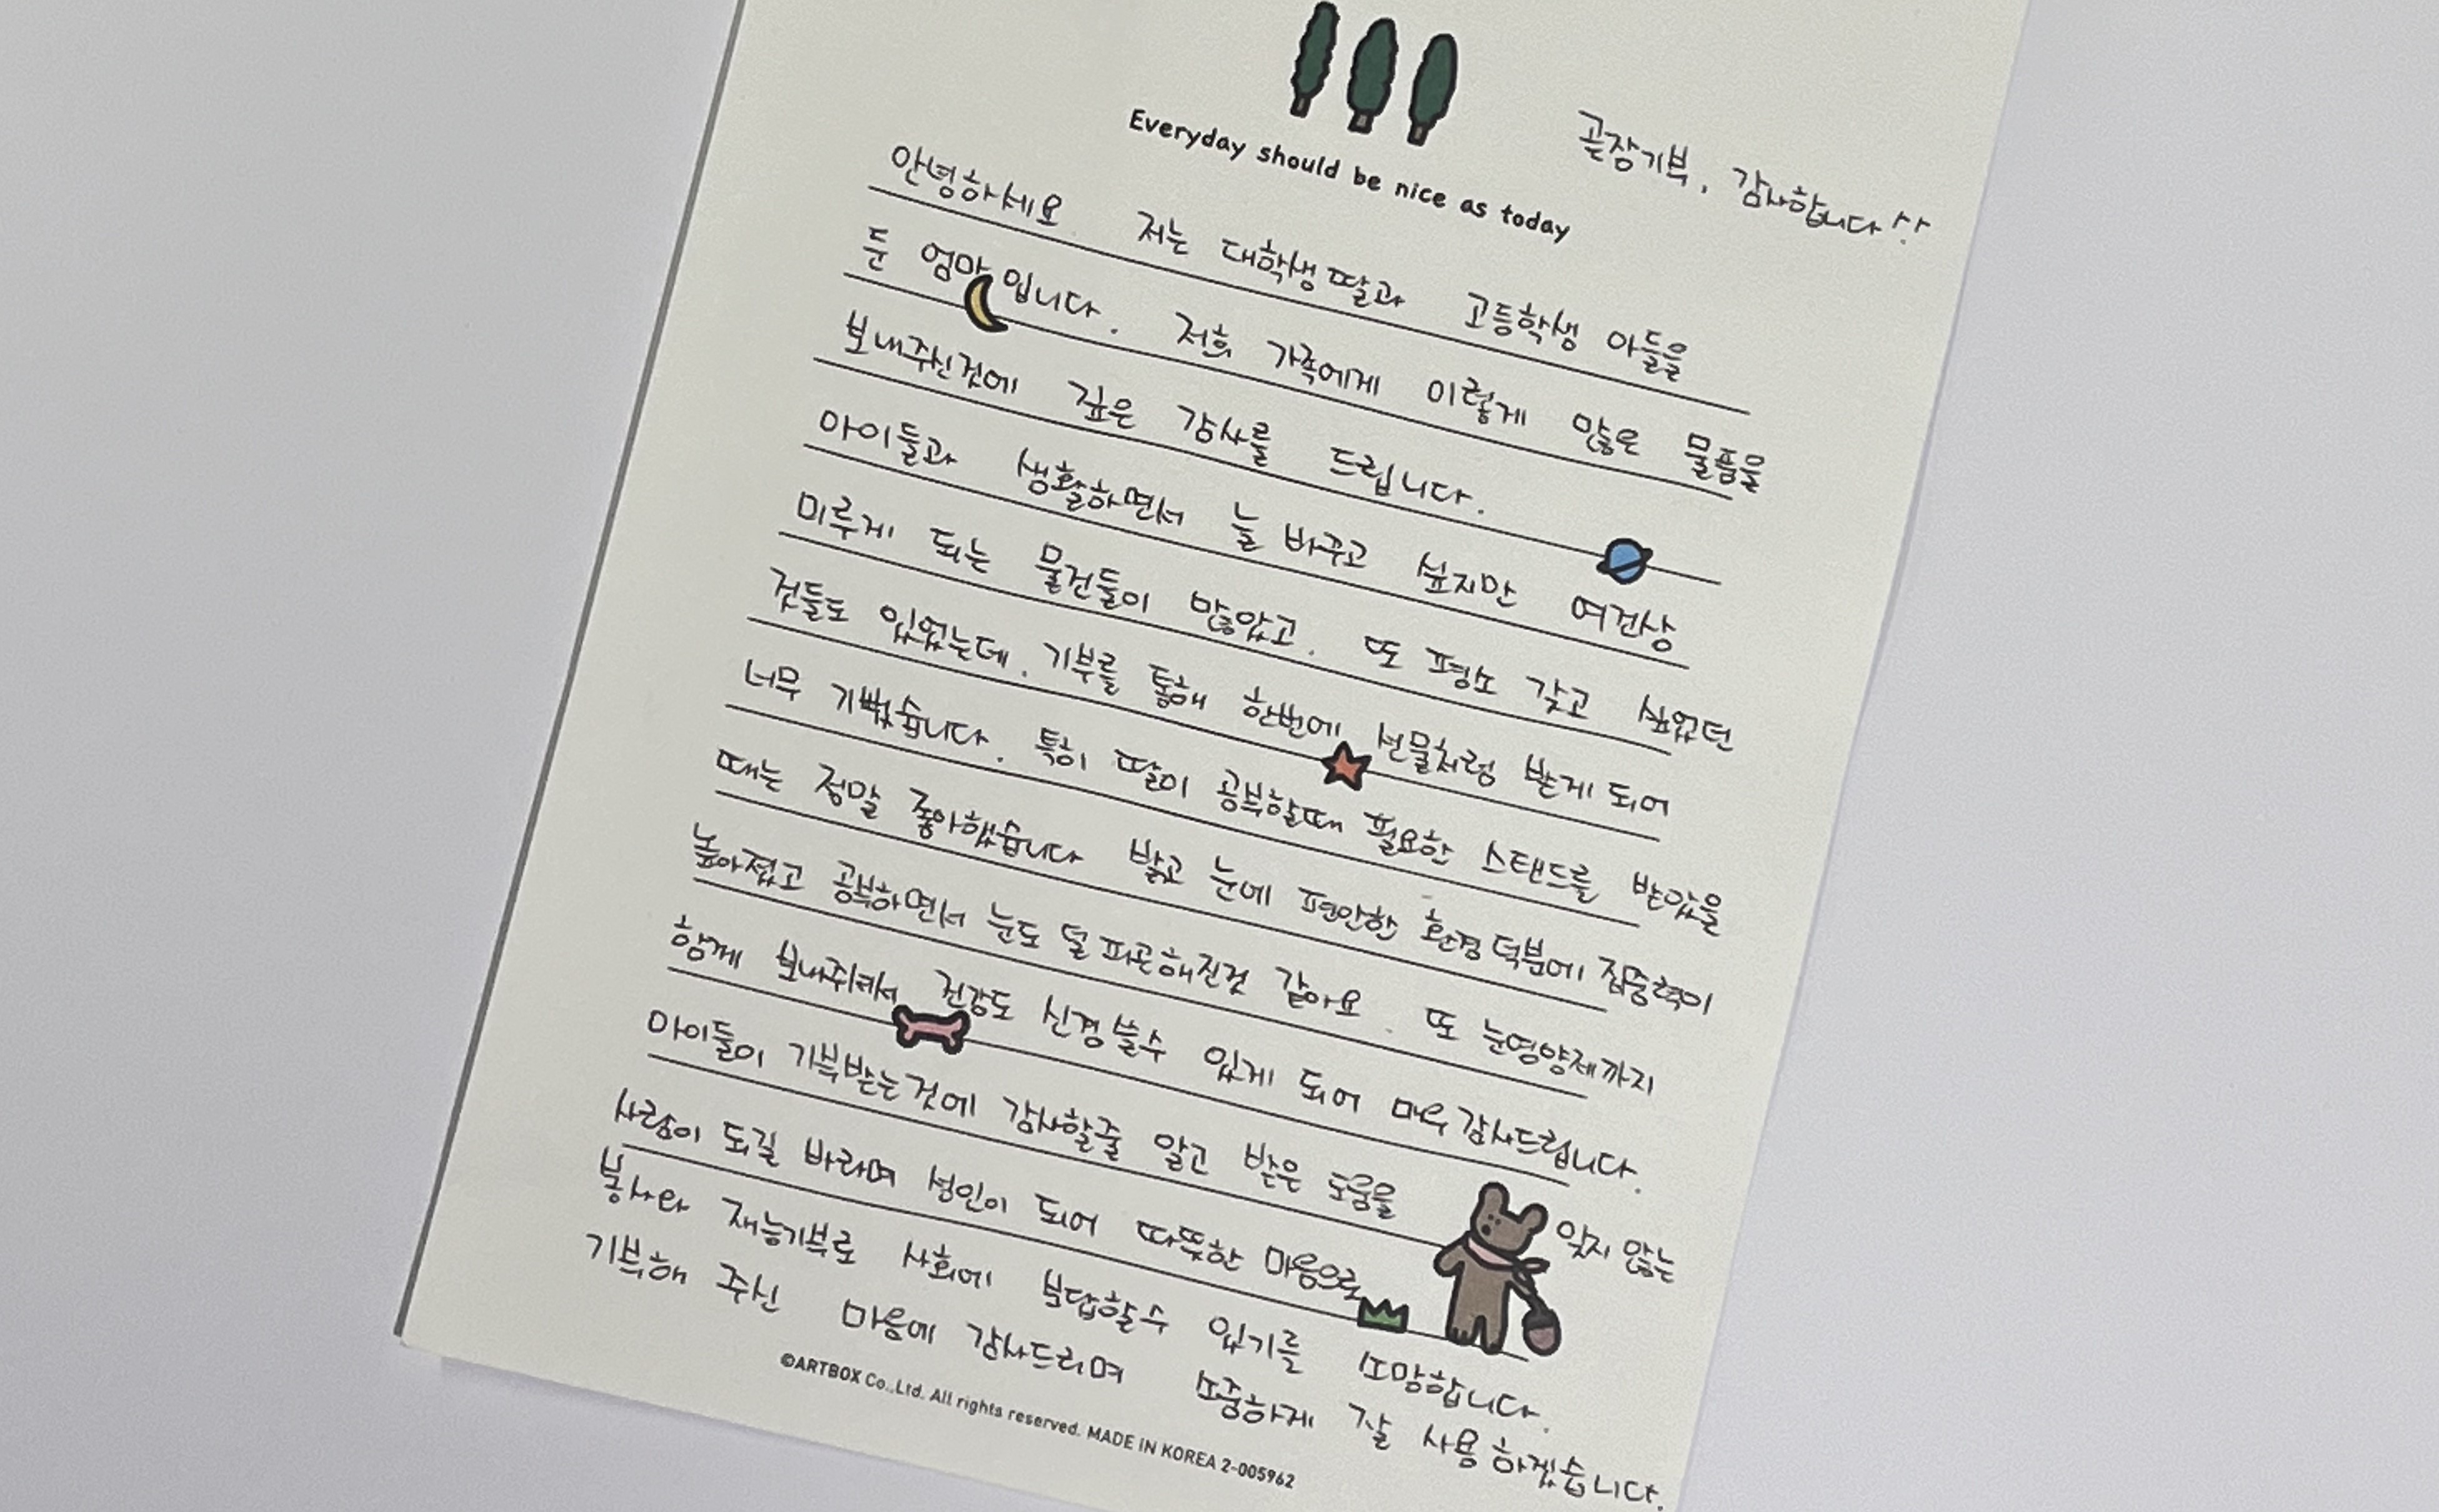 Everyday should be nice as today
곧장기부, 감사합니다!!
안녕하세요 저는 대학생 딸과 고등학생 아들을
둔 엄마입니다. 저희 가족에게 이렇게 많은 물품을
보내주신것에 깊은 감사를 드립니다.
아이들과 생활하면서 늘 바꾸고 싶지만 여건상
미루게 되는 물건들이 많았고. 또 평소 갖고 싶었던
것들도 있었는데. 기부를 통해 한번에 선물처럼 받게 되어
너무 기뻤습니다. 특히 딸이 공부할때 필요한 스탠드를 받았을
때는 정말 좋아했습니다 밝고 눈에 편안한 환경 덕분에 집중력이
높아졌고 공부하면서 눈도 덜 피곤해진것 같아요. 또 눈영양제까지
함께 보내주셔서 건강도 신경쓸수 있게 되어 매우 감사드립니다.
아이들이 기부받는것에 감사할줄 알고 받은 도움을 잊지 않는
사람이 되길 바라며 성인이 되어 따뜻한 마음으로
봉사와 재능기부로 사회에 보답할수 있기를 소망합니다.
기부해 주신 마음에 감사드리며 소중하게 잘 사용하겠습니다.
©ARTBOX Co.,Ltd. All rights reserved. MADE IN KOREA 2-005962